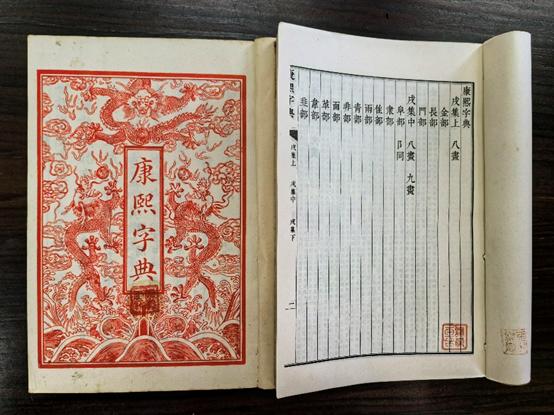 康熙字典
康熙字典
戌集上 八畫
金部
長部
門部
戌集中 八畫 九畫
阜部 阝同
隶部
隹部
雨部
靑部
非部
面部
革部
韋部
韭部
康熙字典 戌集上 戌集中 戌集下 二